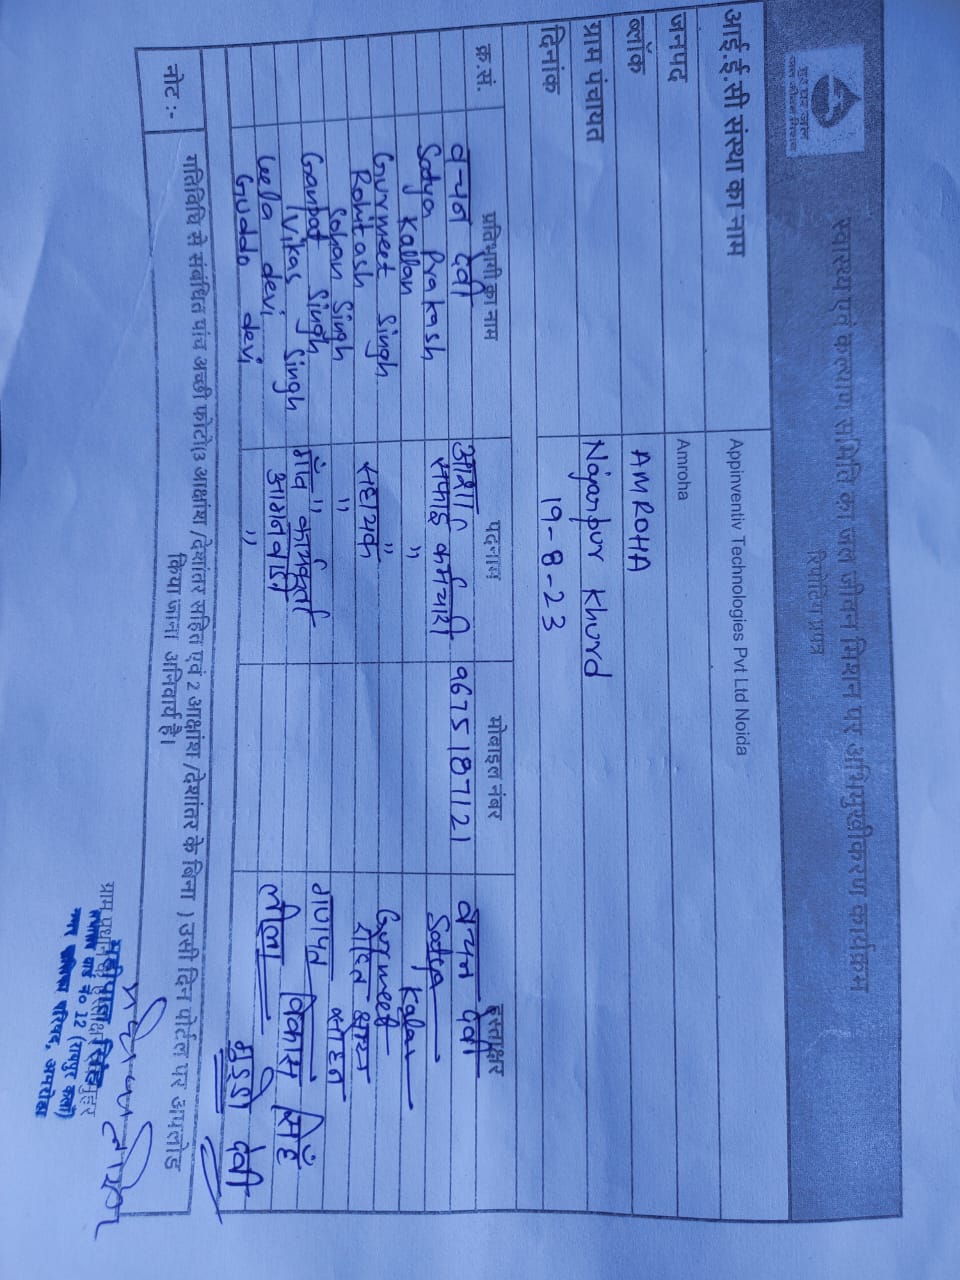 हर घर जल
जल जीवन मिशन
स्वास्थ्य एवं कल्याण समिति का जल जीवन मिशन पर अभिमुखीकरण कार्यक्रम
रिपोर्टिंग प्रपत्र
आई.ई.सी संस्था का नाम Appinventiv Technologies Pvt Ltd Noida
जनपद Amroha
ब्लॉक AMROHA
ग्राम पंचायत Najarpur Khurd
दिनांक 19-8-23
क्र.सं. प्रतिभागी का नाम पदनाम मोबाइल नंबर हस्ताक्षर
वचन देवी आशा 9675187121 वचन देवी
Satya Prakash सफाई कर्मचारी Satya
Kallan " Kalar
Gurmeet Singh " Gurmeet
Rohitash सहायक
Sohan Singh " सोहन
Ganpat Singh " गणपत
Vikas Singh गाँव कार्यकर्ता विकास सिंह
Leela devi आंगनवाड़ी लीला
Guddo devi " गुड्डो देवी
नोट :- गतिविधि से संबंधित पांच अच्छी फोटो(3 आक्षांश /देशांतर सहित एवं 2 आक्षांश /देशांतर के बिना ) उसी दिन पोर्टल पर अपलोड
किया जाना अनिवार्य है।
ग्राम प्रधान के हस्ताक्षर मुहर
सभासद वार्ड नं० 12 (रामपुर कलां)
नगर पालिका परिषद, अमरोहा